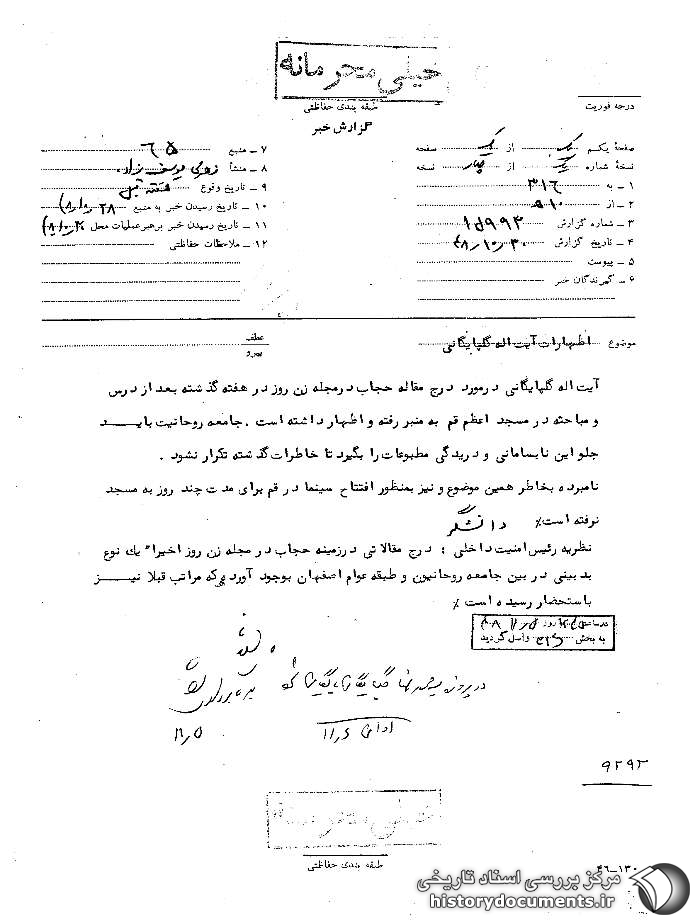 خیلی محرمانه
طبقه بندی حفاظتی
درجه فوریت
گزارش خبر
صفحهٔ یکم یک از یک صفحه
نسخهٔ شماره یک از چهار نسخه
۱ ـ به ۳۱۶
۲ ـ از ۵۱۰
۳ ـ شماره گزارش ۱۵۹۹۳
۴ ـ تاریخ گزارش ۴۸٫۱۰٫۳۰
۵ ـ پیوست
۶ ـ گیرندگان خبر
۷ ـ منبع ۶۵
۸ ـ منشأ
۹ ـ تاریخ وقوع هفته قبل
۱۰ ـ تاریخ رسیدن خبر به منبع
۱۱ ـ تاریخ رسیدن خبر برهبر عملیات محل
۱۲ ـ ملاحظات حفاظتی
موضوع اظهارات آیت اله گلپایگانی
عطف
پیرو
آیت اله گلپایگانی درمورد درج مقاله حجاب درمجله زن روز در هفته گذشته بعد از درس
و مباحثه در مسجد اعظم قم به منبر رفته و اظهار داشته است . جامعه روحانیت بایـــد
جلو این نابسامانی و دریدگی مطبوعات را بگیرد تا خاطرات گذشته تکرار نشود .
نامبرده بخاطر همین موضوع و نیز بمنظور افتتاح سینما در قم برای مدت چند روز به مسجد
نرفته است٪ دانشگر
نظریه رئیس امنیت داخلی : درج مقالاتی درزمینه حجاب در مجله زن روز اخیراً یك نوع
بد بینی در بین جامعه روحانیون و طبقه عوام اصفهان بوجود آورده که مراتب قبلا نیـــز
باستحضار رسیده است ٪
در ساعت روز
به بخش ۳۱۶ واصل گردید
در پرونده گلپایگانی
۱۱٫۵
۱۱٫۶
۹۲۹۲
خیلی محرمانه
طبقه بندی حفاظتی
۴۶-۱۳۰
مرکز بررسی اسناد تاریخی
historydocuments.ir